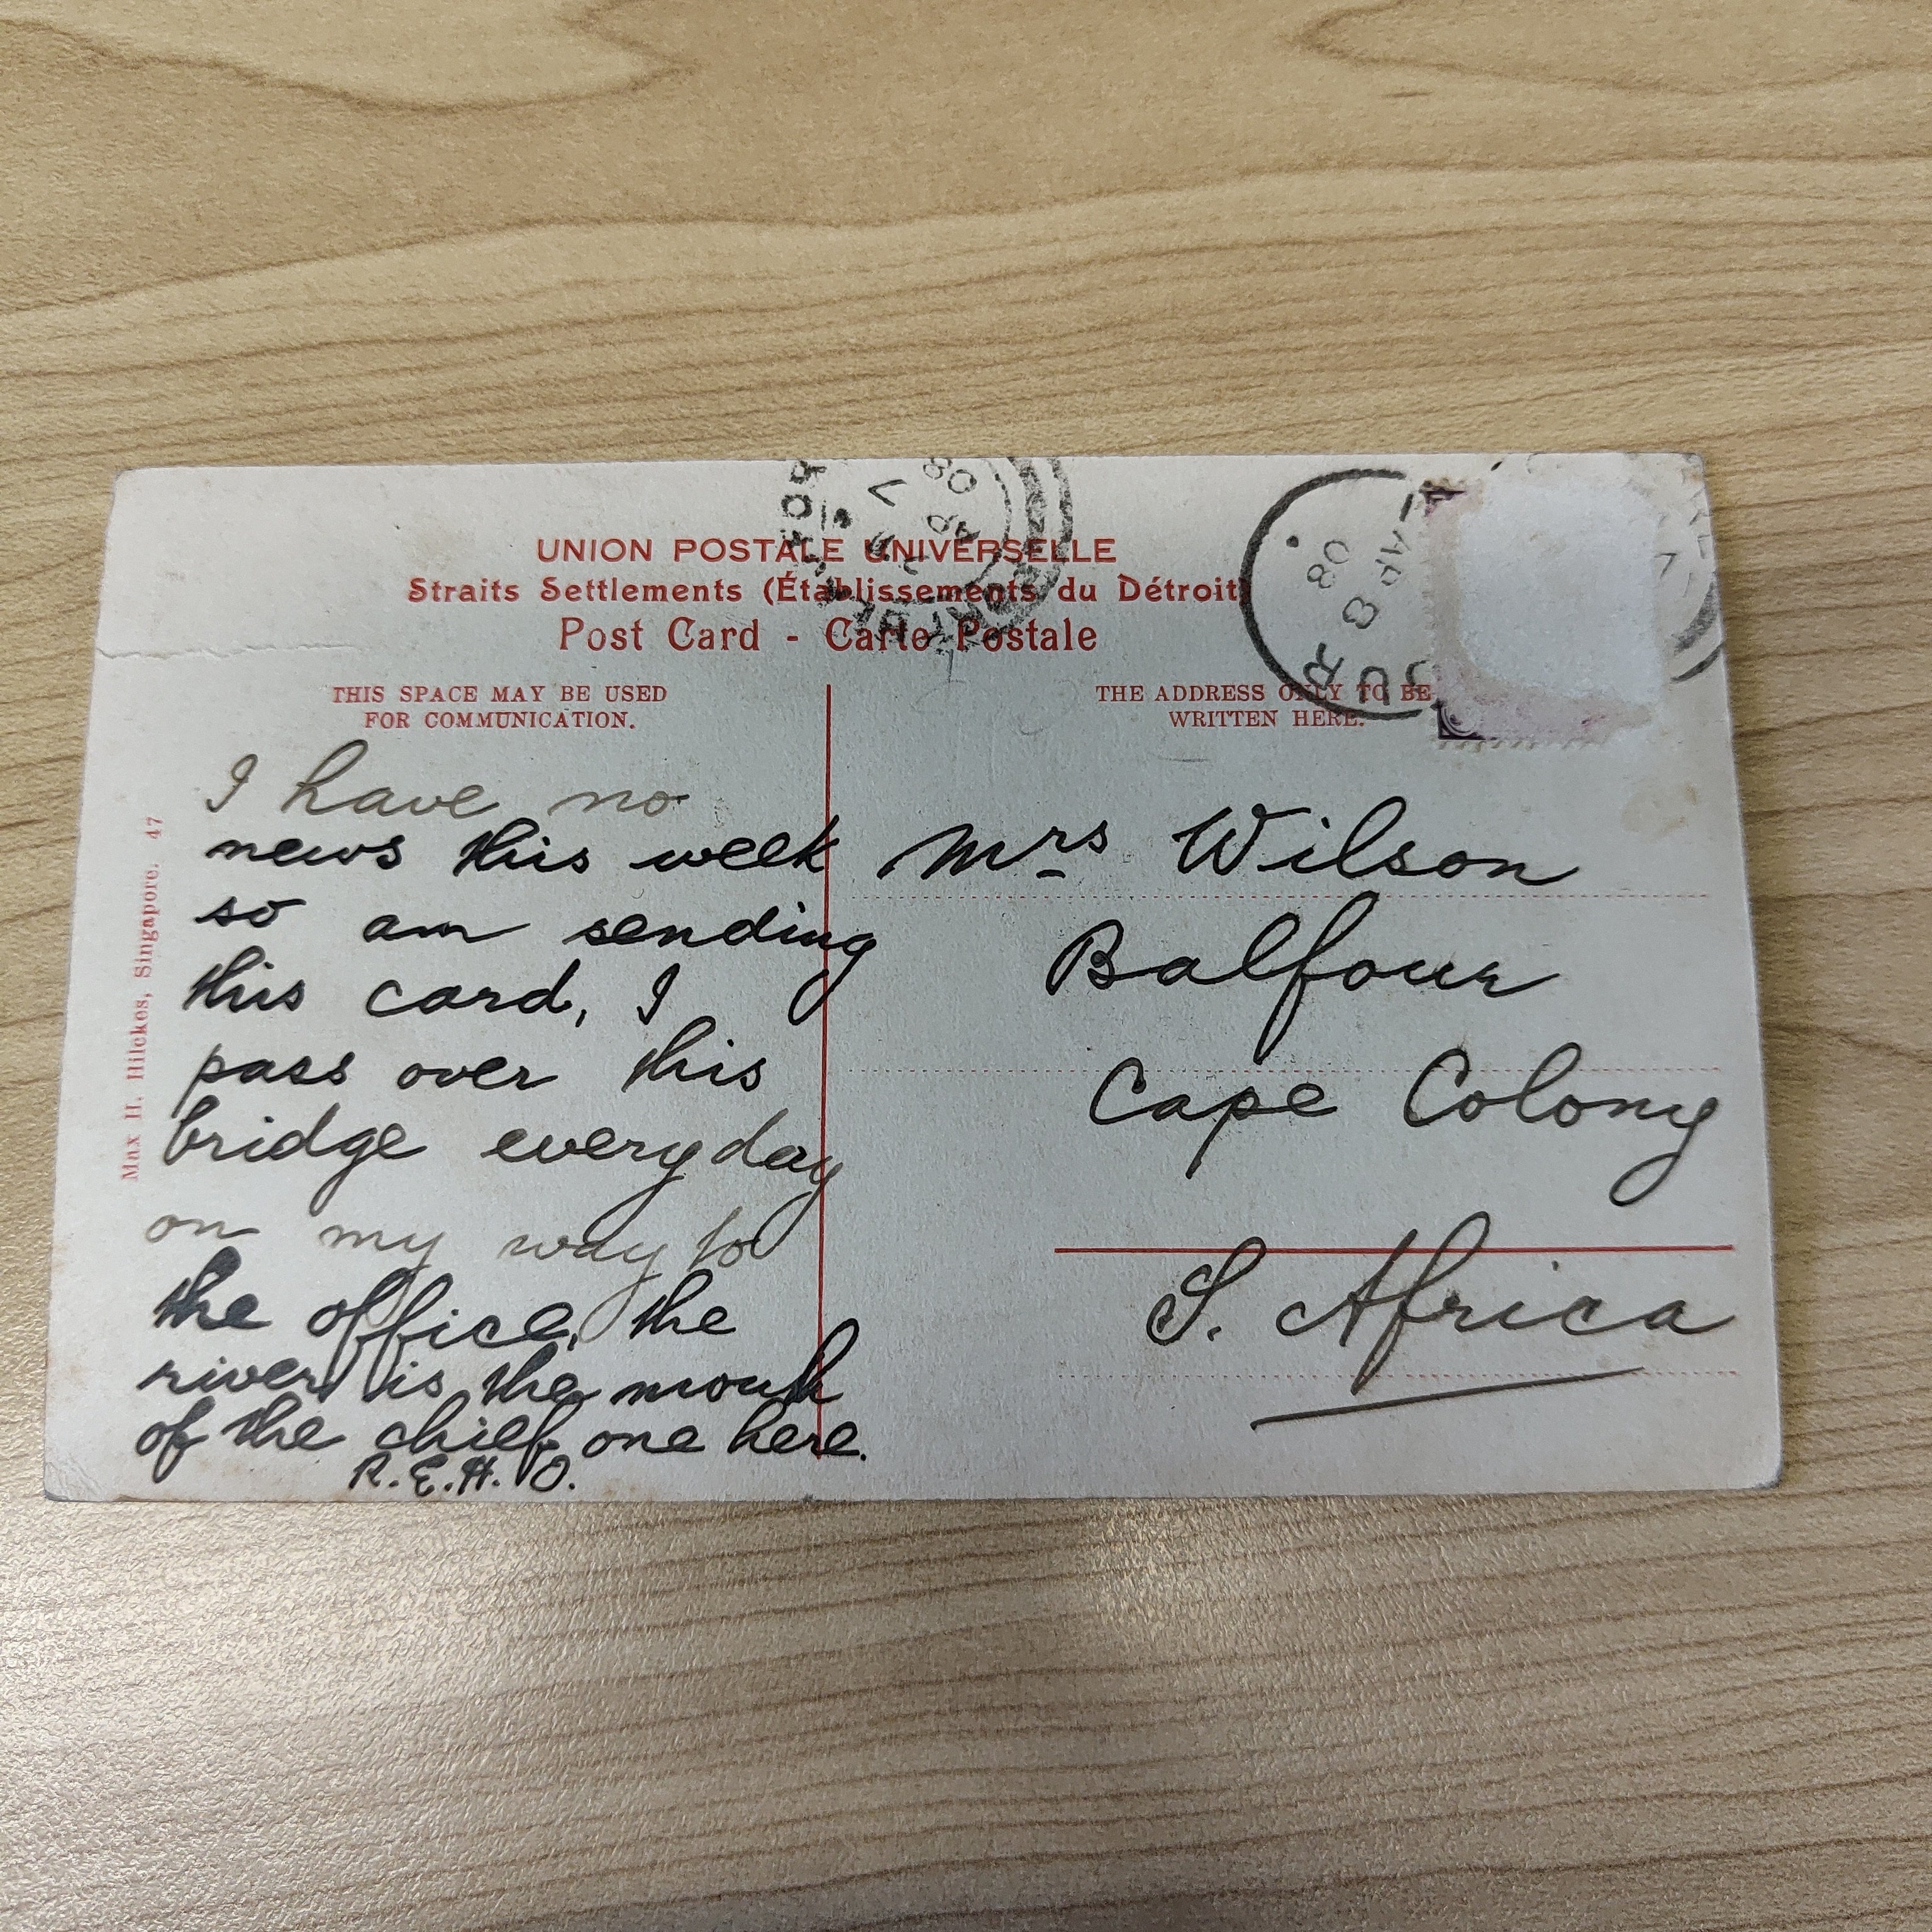 UNION POSTALE UNIVERSELLE
Straits Settlements (Établissements du Détroit)
Post Card - Carte Postale
THIS SPACE MAY BE USED
FOR COMMUNICATION.
THE ADDRESS ONLY TO BE
WRITTEN HERE.
I have no
news this week
so am sending
this card, I
pass over this
bridge every day
on my way to
the office, the
river is the mouth
of the chief one here.
R.E.H.O.
Mrs Wilson
Balfour
Cape Colony
S. Africa
Max H. Hilckes, Singapore. 47
AP 8
08